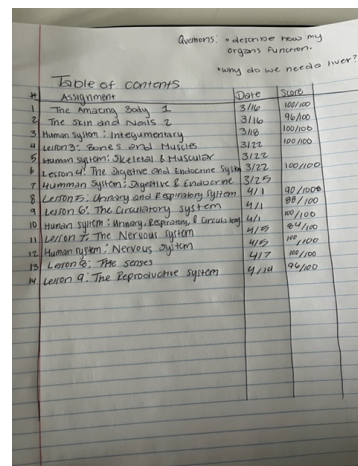 Questions: • describe how my
organs function.
• why do we need a liver?
Table of contents
# Assignment Date Score
1 The Amazing Body 1 3/16 100/100
2 The Skin and Nails 2 3/16 96/100
3 Human System: Integumentary 3/18 100/100
4 Lesson 3: Bones and Muscles 3/22 100/100
5 Human system: Skeletal & Muscular 3/22
6 Lesson 4: The Digestive and Endocrine System 3/22 100/100
7 Humman System: Digestive & Endocrine 3/25
8 Lesson 5: Urinary and Respiratory system 4/1 90/1000
9 Lesson 6: The Circulatory system 4/1 88/100
10 Human system: Urinary, Respiratory, & Circulatory 4/1 100/100
11 Lesson 7: The Nervous System 4/5 84/100
12 Human system: Nervous System 4/5 100/100
13 Lesson 8: The senses 4/7 100/100
14 Lesson 9: The Reproductive system 96/100